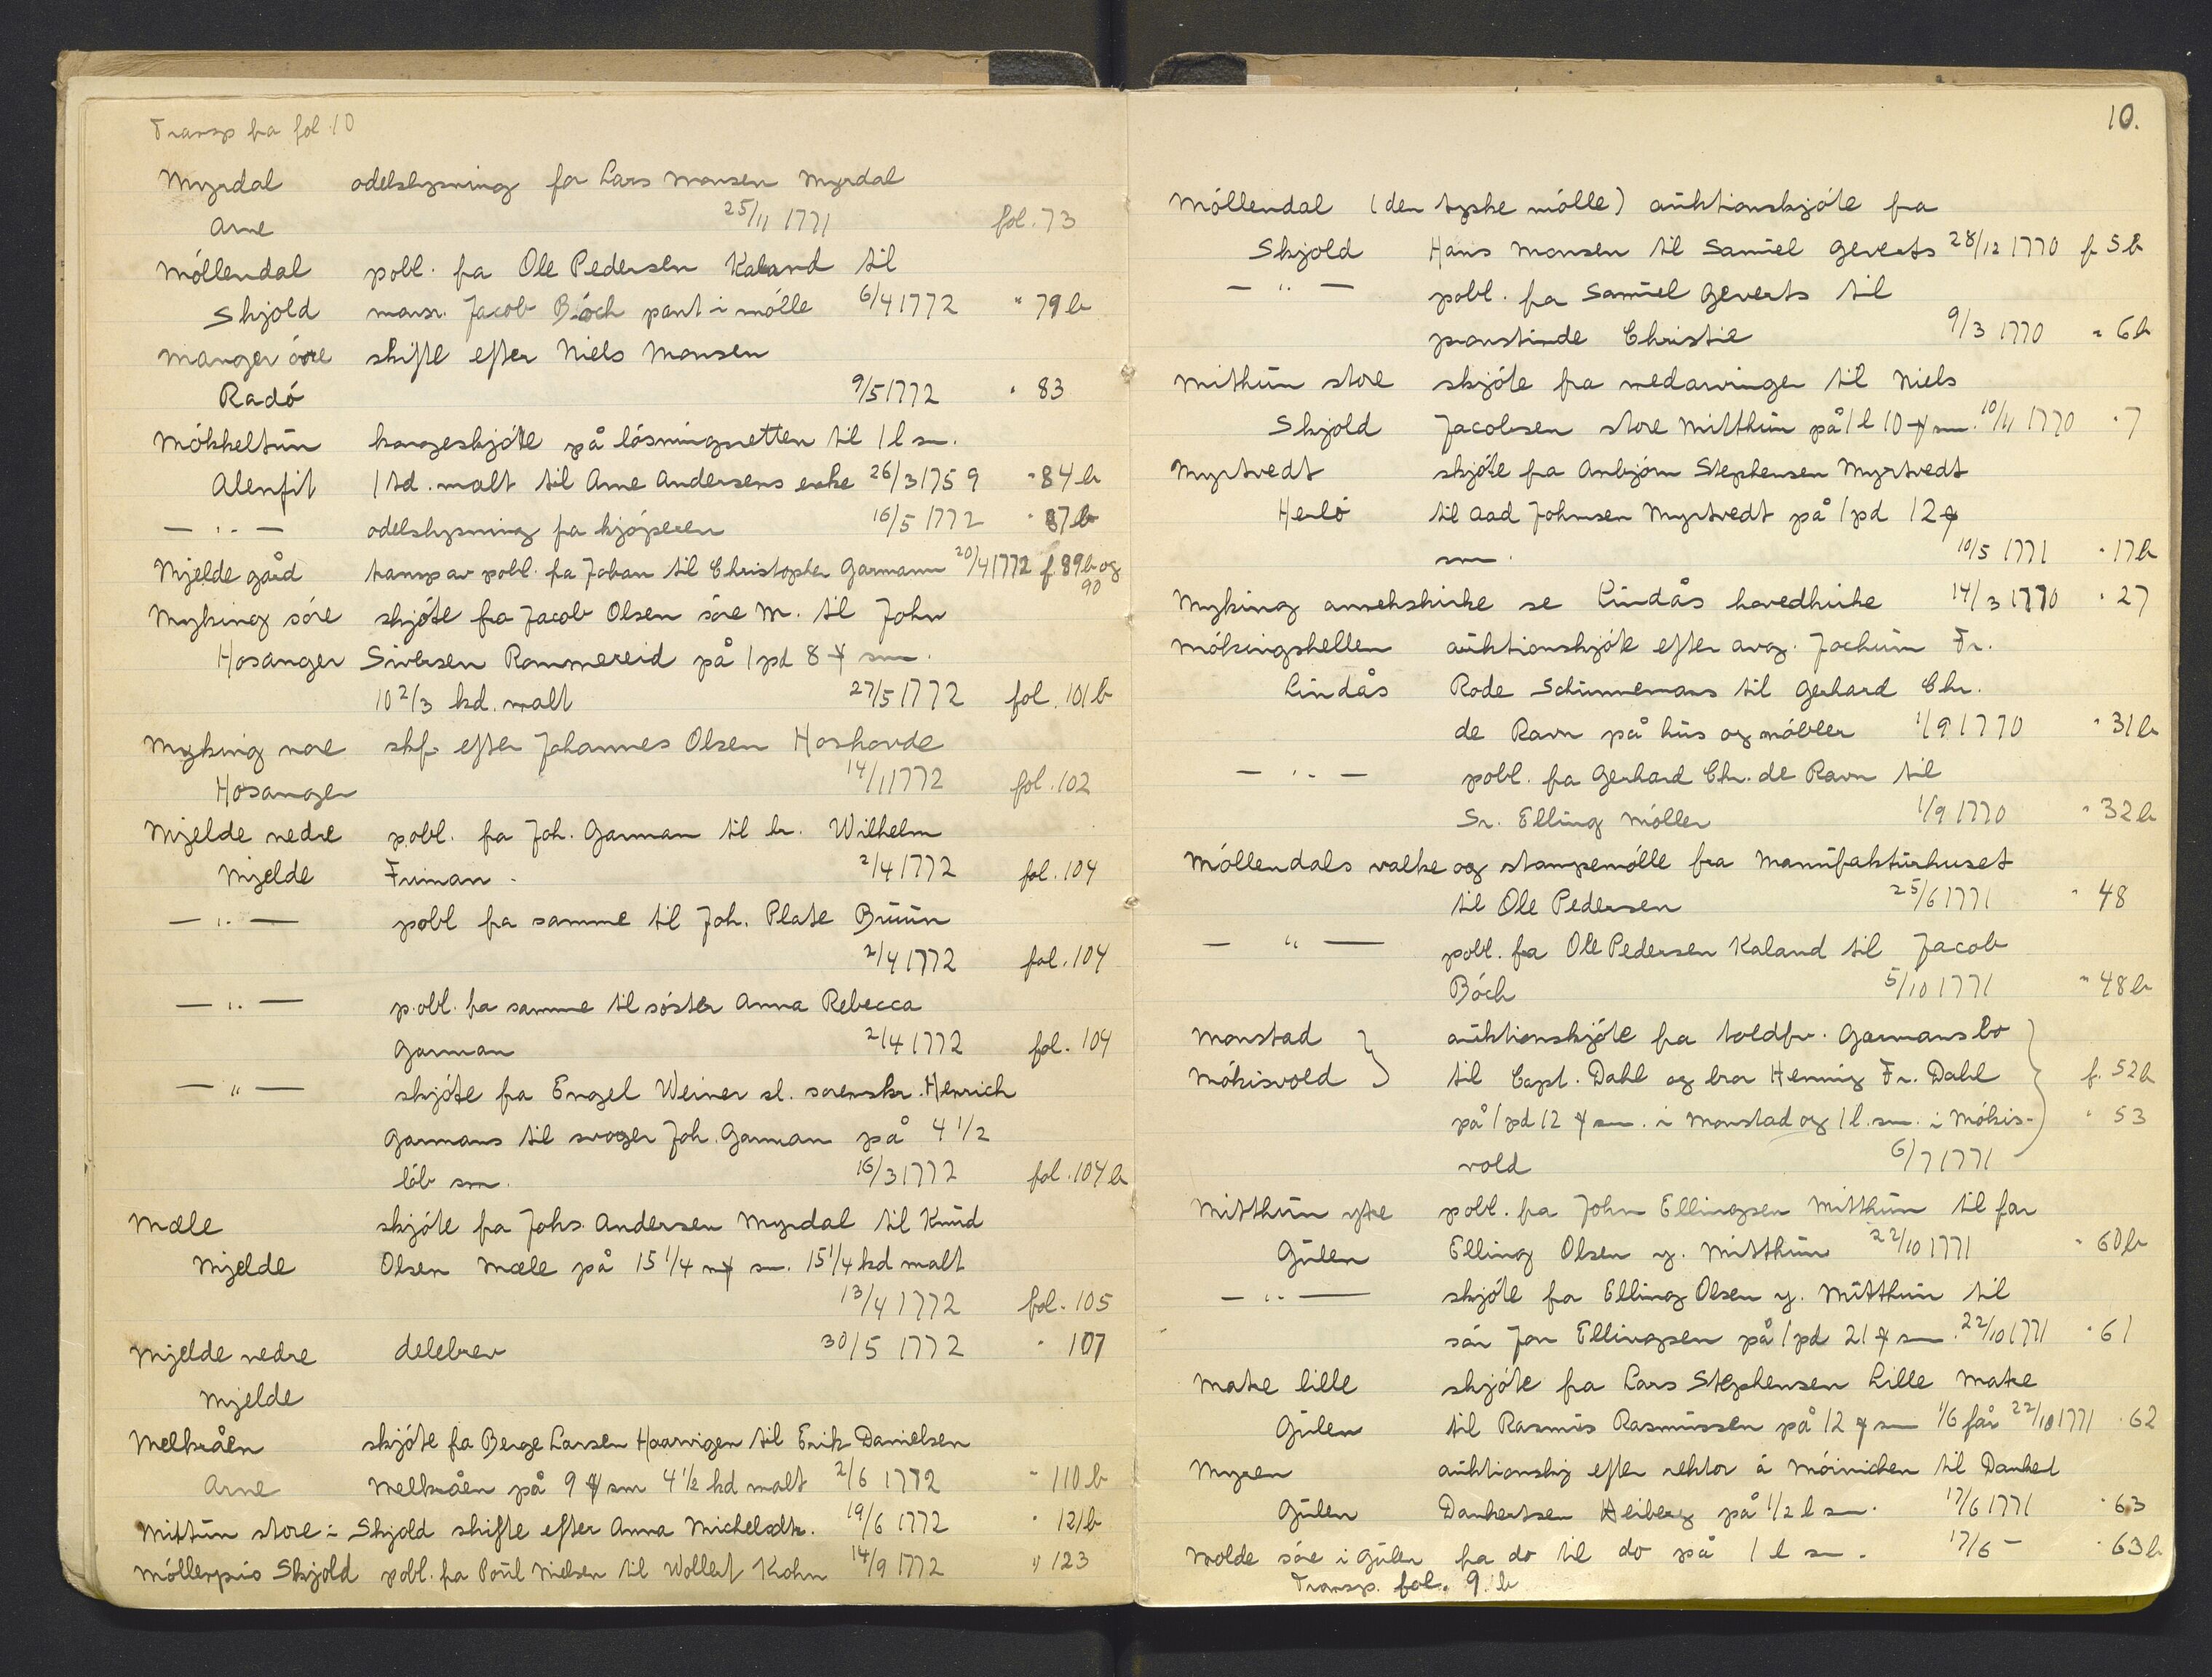 Transp fra fol. 10
Myrdal odelslysning for Lars Monsen Myrdal
Arne 25/11 1771 fol. 73
Möllendal pobl. fra Ole Pedersen Kaland til
Skjold monsr. Jacob Böch pant i mölle 6/4 1772 " 79 b
Manger övre skifte efter Niels Monsen
Radö 9/5 1772 " 83
Mökkeltun haugeskjöte på lösningsretten til 1 l sm.
Alenfit 1 td. malt til Arne Andersens enke 26/3 1759 " 84 b
— " — odelslysning fra kjöperen 16/5 1772 " 87 b
Mjelde gård transp av pobl. fra Johan til Christopher Garmann 20/4 1772 f. 89 b og
90
Myking söre skjöte fra Jacob Olsen söre M. til John
Hosanger Sivertsen Rommereid på 1 pd 8 ℔ sm.
10 2/3 kd. malt 27/5 1772 fol. 101 b
Myking nore skf. efter Johannes Olsen Hoshovde
Hosanger 14/1 1772 fol. 102
Mjelde nedre pobl. fra Joh. Garman til br. Wilhelm
Mjelde Friman. 2/4 1772 fol. 104
— " — pobl fra samme til Joh. Plate Bruun
2/4 1772 fol. 104
— " — pobl. fra samme til söster Anna Rebecca
Garman 2/4 1772 fol. 104
— " — skjöte fra Engel Weiner sl. sorenskr. Henrich
Garmans til svoger Joh. Garman på 4 1/2
löb sm. 16/3 1772 fol. 104 b
Mæle skjöte fra Johs. Andersen Myrdal til Knud
Mjelde Olsen Mæle på 15 1/4 m℔ sm. 15 1/4 kd malt
13/4 1772 fol. 105
Mjelde nedre delebrev 30/5 1772 " 107
Mjelde
Melkråen skjöte fra Berge Larsen Haarvigen til Erik Danielsen
Arne Melkråen på 9 ℔ sm 4 1/2 kd malt 2/6 1772 " 110 b
Mittun store i Skjold skifte efter Anna Michelsdtr. 19/6 1772 " 121 b
Möllerpris Skjold pobl. fra Poul Nielsen til Wollert Krohn 14/9 1772 " 123
10.
Möllendal (den tyske mölle) auktionskjöte fra
Skjold Hans Monsen til Samuel Geverts 28/12 1770 f 5 b
— " — pobl. fra Samuel Geverts til
provstinde Christie 9/3 1770 " 6 b
Mitthun store skjöte fra medarvinger til Niels
Skjold Jacobsen store Mitthun på 1 l 10 ℔ sm. 10/11 1770 " 7
Myrtvedt skjöte fra Anbjörn Stephensen Myrtvedt
Herlö til Aad Johnsen Myrtvedt på 1 pd 12 ℔
sm. 10/5 1771 " 17 b
Myking annekskirke se Lindås hovedkirke 14/3 1770 " 27
Mökingshellen auktionskjöte efter avg. Jochum Fr.
Lindås Rode Schunnemans til Gerhard Chr.
de Ravn på hus og möbler 1/9 1770 " 31 b
— " — pobl. fra Gerhard Chr. de Ravn til
Sr. Elling Möller 1/9 1770 " 32 b
Möllendals valke og stampemölle fra Manufakturhuset
til Ole Pedersen 25/6 1771 " 48
— " — pobl. fra Ole Pedersen Kaland til Jacob
Böch 5/10 1771 " 48 b
Monstad } auktionskjöte fra toldfv. Garmans bo
Mökisvold } til Capt. Dahl og bror Hennig Fr. Dahl f. 52 b
på 1 pd 12 ℔ sm. i Monstad og 1 l. sm. i Mökis- " 53
vold 6/7 1771
Mitthun ytre pobl. fra John Ellingsen Mitthun til far
Gulen Elling Olsen y. Mitthun 22/10 1771 " 60 b
— " — skjöte fra Elling Olsen y. Mitthun til
sön Jon Ellingsen på 1 pd 21 ℔ sm. 22/10 1771 " 61
Makre lille skjöte fra Lars Stephensen Lille Makre
Gulen til Rasmus Rasmussen på 12 ℔ sm 1/6 får 22/10 1771 " 62
Myren auktionskj efter rektor á Möinichen til Danket
Gulen Dankertsen Heiberg på 1/2 l sm. 17/6 1771 " 63
Molde söre i Gulen fra do til do på 1 l sm. 17/6 — " 63 b
Transp. fol. 9 b